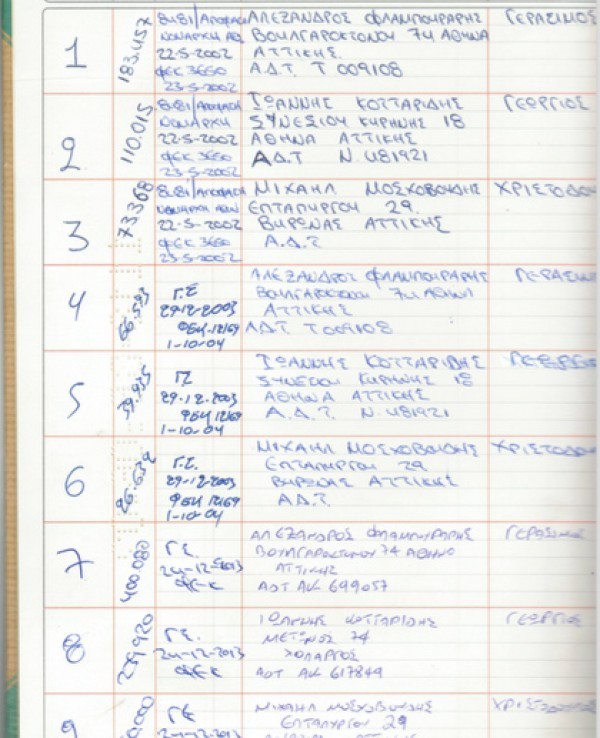 1
183.457
22-5-2002
ΦΕΚ 3660
23-5-2002
ΑΛΕΞΑΝΔΡΟΣ ΦΛΑΜΠΟΥΡΑΡΗΣ
ΒΟΥΛΓΑΡΟΚΤΟΝΟΥ 74 ΑΘΗΝΑ
ΑΤΤΙΚΗΣ
Α.Δ.Τ. Τ 009108
ΓΕΡΑΣΙΜΟΣ
2
110.015
22-5-2002
ΦΕΚ 3660
23-5-2002
ΙΩΑΝΝΗΣ ΚΟΤΤΑΡΙΔΗΣ
ΣΥΝΕΣΙΟΥ ΚΥΡΗΝΗΣ 18
ΑΘΗΝΑ ΑΤΤΙΚΗΣ
Α.Δ.Τ Ν. 481921
ΓΕΩΡΓΙΟΣ
3
73.368
22-5-2002
ΦΕΚ 3660
23-5-2002
ΜΙΧΑΗΛ ΜΟΣΧΟΒΟΥΔΗΣ
ΕΠΤΑΠΥΡΓΟΥ 29
ΒΥΡΩΝΑΣ ΑΤΤΙΚΗΣ
Α.Δ.Τ
ΧΡΙΣΤΟΔΟΥ
4
66.593
Γ.Σ
29-12-2003
1-10-04
ΑΛΕΞΑΝΔΡΟΣ ΦΛΑΜΠΟΥΡΑΡΗΣ
74 ΑΘΗΝΑ
ΑΤΤΙΚΗΣ
ΑΔΤ Τ009108
5
39.935
29-12-2003
1-10-04
ΙΩΑΝΝΗΣ ΚΟΤΤΑΡΙΔΗΣ
ΣΥΝΕΣΙΟΥ ΚΥΡΗΝΗΣ 18
ΑΘΗΝΑ ΑΤΤΙΚΗΣ
Α.Δ.Τ. Ν. 481921
6
26.632
Γ.Σ.
29-12-2003
1-10-04
ΜΙΧΑΗΛ ΜΟΣΧΟΒΟΥΔΗΣ
ΕΠΤΑΠΥΡΓΟΥ 29
ΒΥΡΩΝΑΣ ΑΤΤΙΚΗΣ
Α.Δ.Τ
7
400.080
Γ.Σ.
24-12-2013
ΑΛΕΞΑΝΔΡΟΣ ΦΛΑΜΠΟΥΡΑΡΗΣ
ΒΟΥΛΓΑΡΟΚΤΟΝΟΥ 74 ΑΘΗΝΑ
ΑΤΤΙΚΗΣ
ΑΔΤ ΑΚ 699057
ΓΕΡΑΣΙΜΟΣ
8
239.920
Γ.Σ.
24-12-2013
ΙΩΑΝΝΗΣ ΚΟΤΤΑΡΙΔΗΣ
74
ΧΟΛΑΡΓΟΣ
ΑΔΤ ΑΚ 617849
ΓΕΩΡΓΙΟΣ
9
ΓΣ
ΜΙΧΑΗΛ ΜΟΣΧΟΒΟΥΔΗΣ
ΕΠΤΑΠΥΡΓΟΥ 29